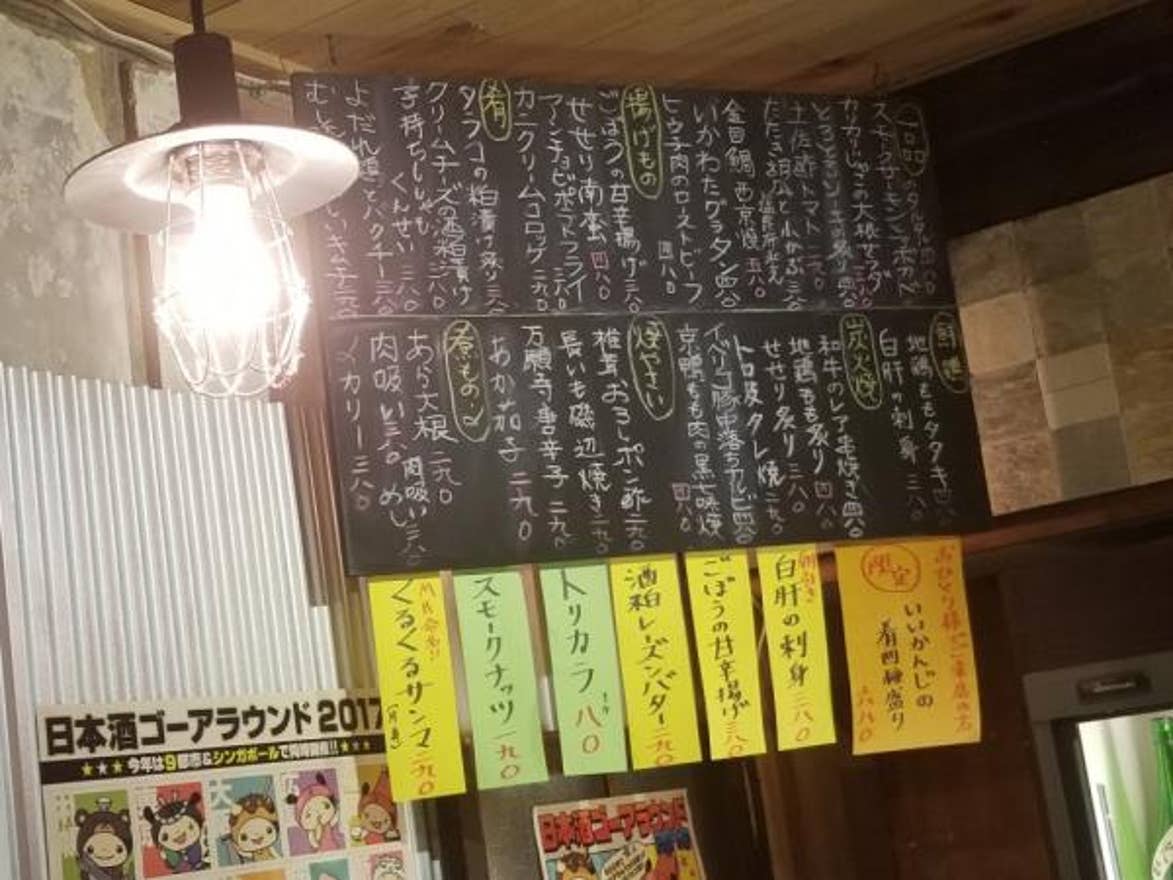 一品
スモークサーモンとアボカドのタルタル 四八〇
カリカリじゃこの大根サラダ
土佐酢トマト 二九〇
たたき胡瓜と小かぶ 三八〇
金目鯛西京焼 五八〇
いかわたグラタン 四八〇
ヒウチ肉のローストビーフ 四八〇
揚げもの
ごぼうの甘辛揚げ 三八〇
せせり南蛮 四八〇
アンチョビポテトフライ 三八〇
カニクリームコロッケ 二九〇
肴
タラコの粕漬け炙り 三八〇
クリームチーズの酒粕漬け 三八〇
子持ちししゃも くんせい 三八〇
よだれ
パクチー 三八〇
キムチ
地鶏ももタタキ
白肝の刺身 三八〇
炭火焼
和牛のレア串焼き 四八〇
地鶏もも炙り 四八〇
せせり炙り 三八〇
トロ皮タレ焼 二九〇
イベリコ豚中落ちカルビ 四八〇
京鴨もも肉の黒七味焼 四八〇
焼やさい
椎茸おろしポン酢 二九〇
長いも磯辺焼き 二九〇
万願寺唐辛子 二九〇
あか茄子 二九〇
煮もの
あら大根 二九〇
肉吸い 三八〇
肉吸いめし 三八〇
〆カリー 三八〇
おひとり様にご来店の方
限定
いいかんじの
肴四種盛り
六八〇
朝引き
白肝の刺身 三八〇
ごぼうの甘辛揚げ 三八〇
酒粕レーズンバター 二九〇
トリカラ
八〇
スモークナッツ 一九〇
くるくるサンマ 二九〇
日本酒ゴーアラウンド 2017
★★★今年は9都市&シンガポールで同時開催!!★★★
日本酒ゴーアラウンド